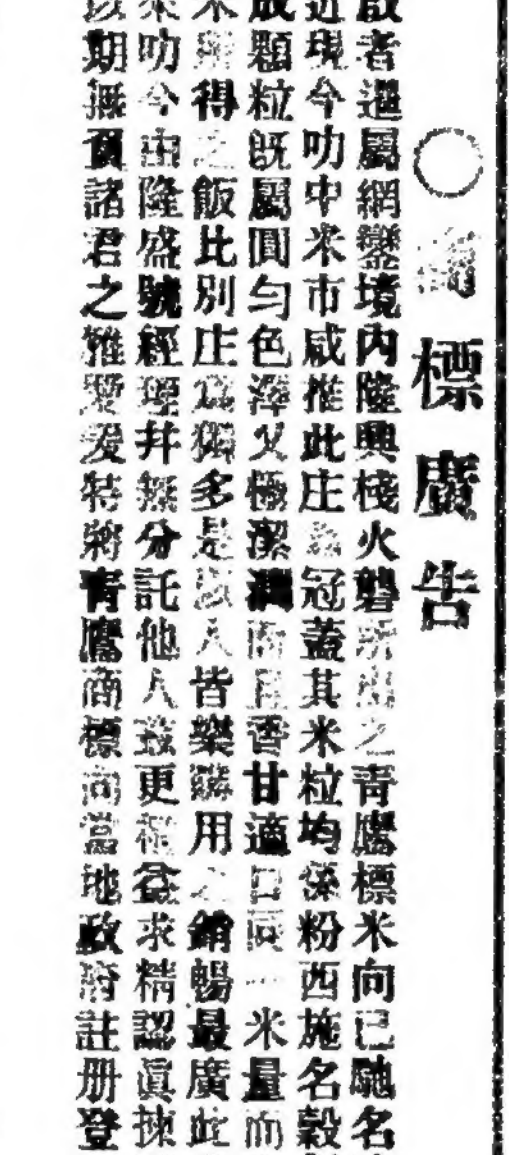 ○商標廣告
啟者暹屬網鑾境內隆興棧火礱所出之青鷹標米向已馳名
近現今叻中米市咸推此庄為冠蓋其米粒均係粉西施名穀
成顆粒既屬圓勻色澤又極潔潤而且香甘適口同一米量而
米得之飯比別庄為獨多是以人皆樂購用之銷暢最廣此
來叻今由隆盛號經理并無分託他人茲更裡益求精認眞揀
以期無負諸君之雅愛爰特將青鷹商標向當地政府註册登